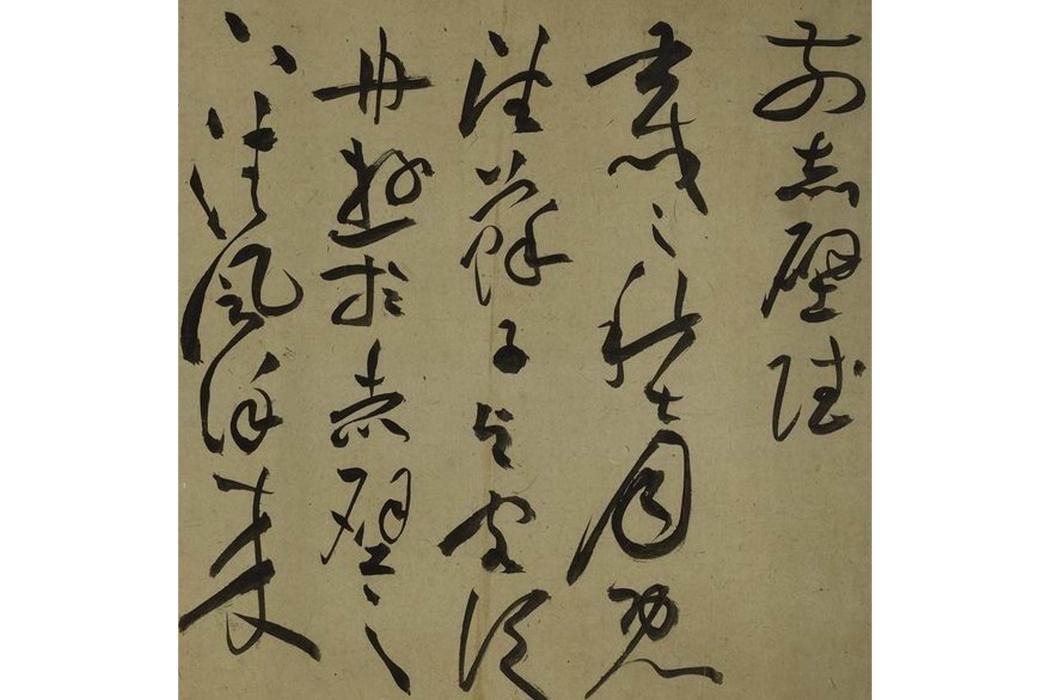 前赤壁賦
壬戌之秋七月既
望蘇子與客泛
舟遊於赤壁之
下清風徐來